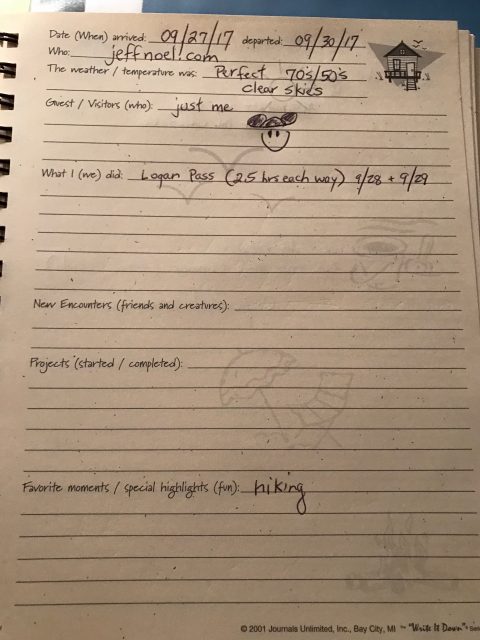 Date (When) arrived: 09/27/17 departed: 09/30/17
Who: jeffnoel.com
The weather / temperature was: Perfect 70's/50's
Clear skies
Guest / Visitors (who): just me
What I (we) did: Logan Pass (2.5 hrs each way) 9/28 + 9/29
New Encounters (friends and creatures):
Projects (started / completed):
Favorite moments / special highlights (fun): hiking
© 2001 Journals Unlimited, Inc., Bay City, MI The "Write It Down"®